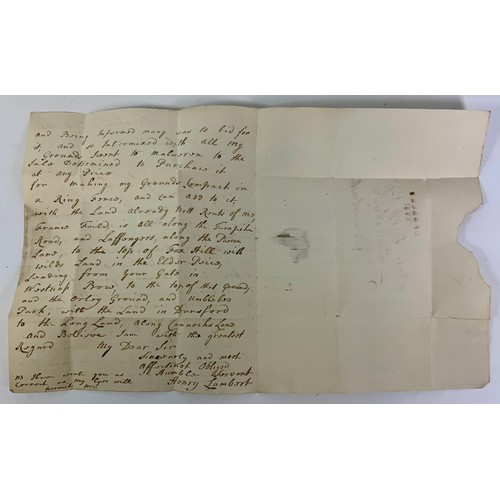 and Being Informed many was to bid for
it, and so Intermixed with all my
Grounds Sent to malvern to the
Sale Determined to Purchase it
at any Price
for making my Grounds Compact in
a Ring Fence, and can add to it,
with the Land already Nott Rents of mo,
Frances Field, is all along the Turnpike
Road, and Laffongers, along the
Lane, to the top of Fox Hill, with
wilds Land in the Elder Peice,
Leading from your Gate in
Brow, to the top of that Ground,
and the Orley Ground, and Umblebee
Park, with the Land in Dunsford
to the Long Land, along Lane
and Believe I am with the greatest
Regard My Dear Sir
Sincerely and most
affectinet Oblig'd
Humble Servant
Henry Lambert
NB I have sent you as
Correct as my Eyes will
permit me